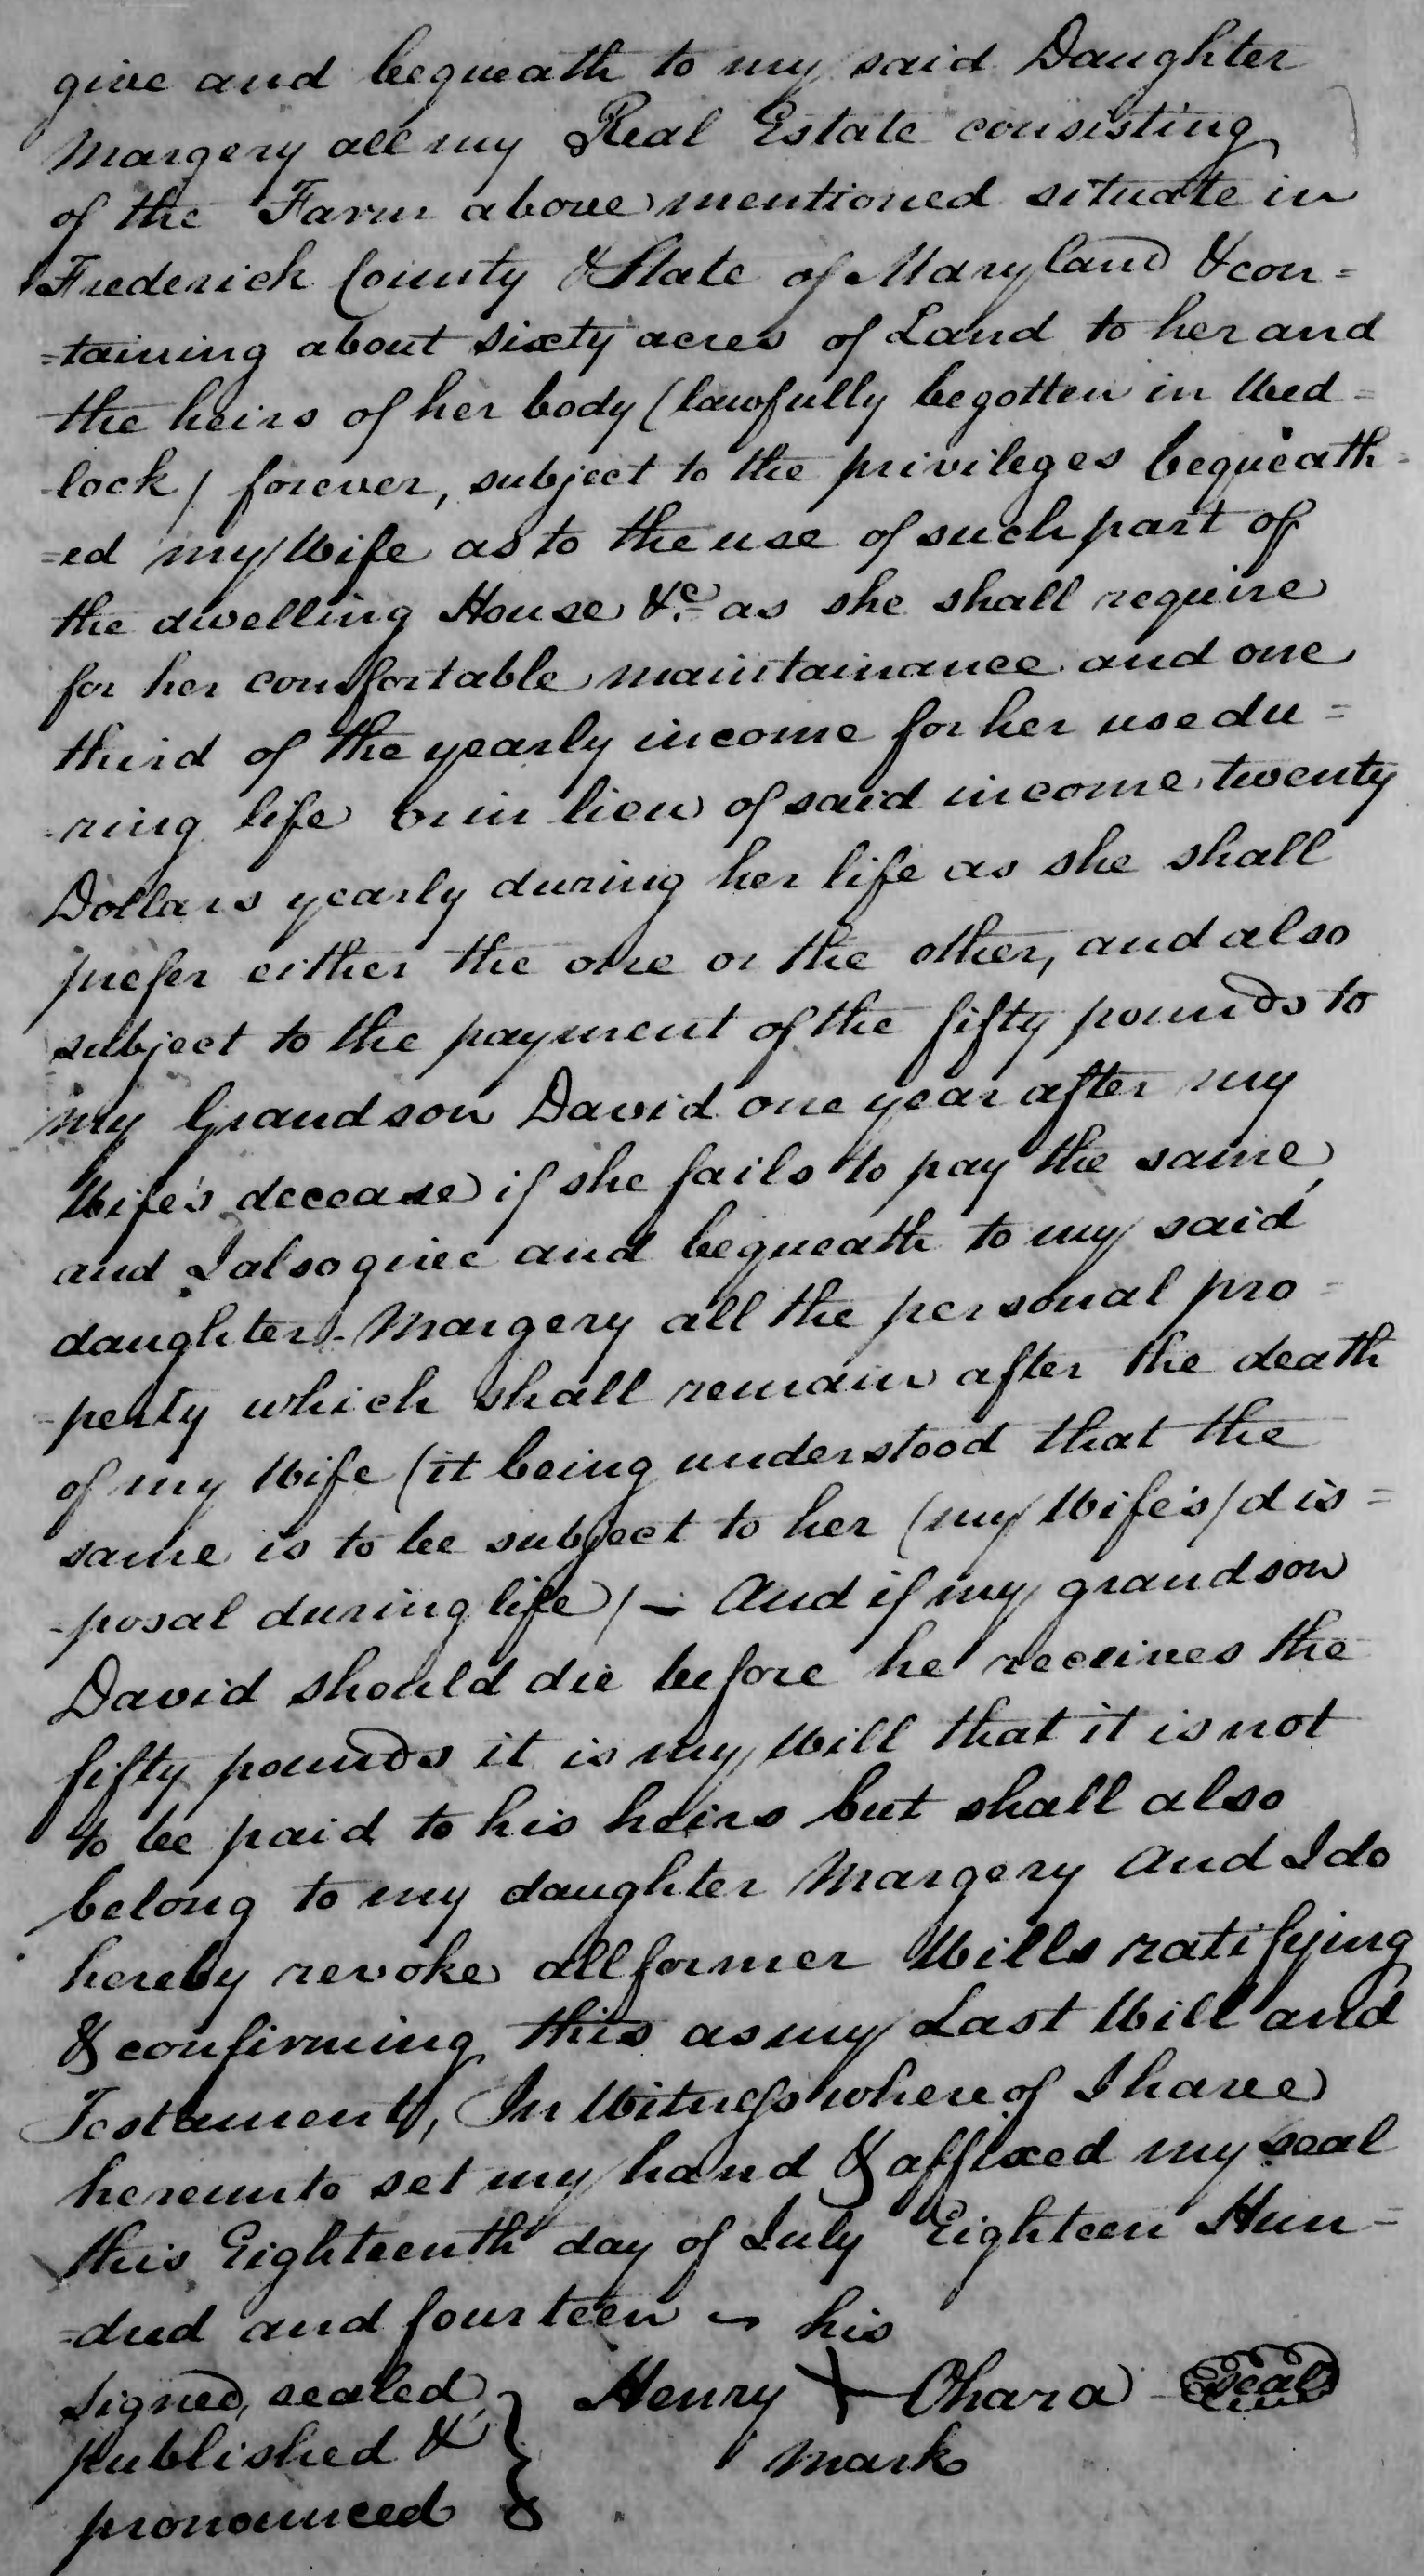 give and bequeath to my said Daughter
Margery all my Real Estate consisting
of the Farm above mentioned situate in
Frederick County & State of Maryland & con=
=taining about sixty acres of Land to her and
the heirs of her body (lawfully begotten in Wed=
-lock) forever, subject to the privileges bequeath-
=ed my Wife as to the use of such part of
the dwelling House &c. as she shall require
for her comfortable maintainance and one
third of the yearly income for her use du=
-ring life or in lieu of said income twenty
Dollars yearly during her life as she shall
prefer either the one or the other, and also
subject to the payment of the fifty pounds to
my Grandson David one year after my
Wife's decease if she fails to pay the same,
and I also give and bequeath to my said
daughter Margery all the personal pro=
-perty which shall remain after the death
of my Wife (it being understood that the
same is to be subject to her (my Wife's) dis=
-posal during life) — And if my grandson
David should die before he receives the
fifty pounds it is my Will that it is not
to be paid to his heirs but shall also
belong to my daughter Margery And I do
hereby revoke all former Wills ratifying
& confirming this as my Last Will and
Testament, In Witness whereof I have
hereunto set my hand & affixed my seal
this Eighteenth day of July Eighteen Hun-
=dred and fourteen — his
Signed, sealed, } Henry X Ohara Seal
published & } mark
pronounced }